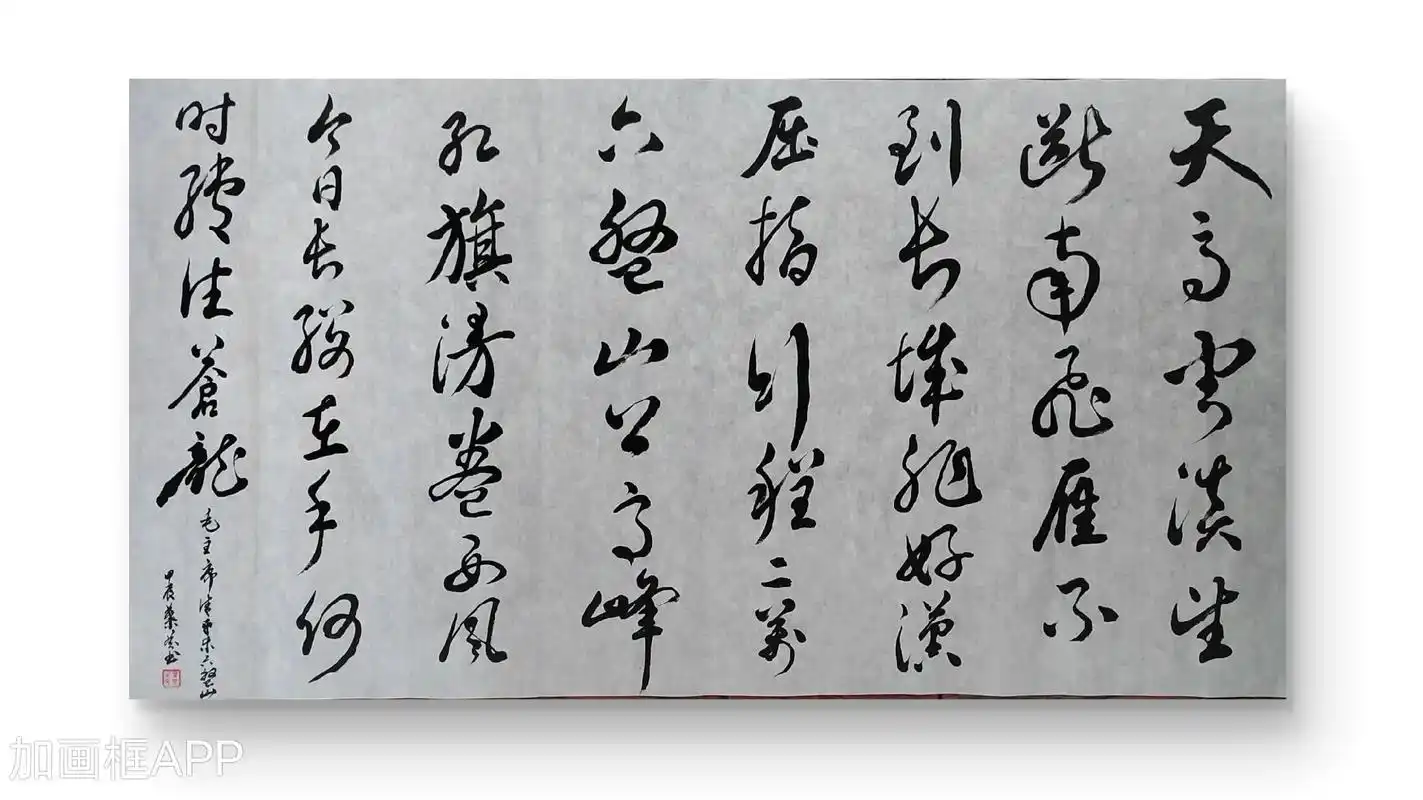 天高雲淡望
斷南飛雁不
到长城非好漢
屈指行程二萬
六盤山上高峰
红旗漫卷西風
今日长缨在手何
时缚住蒼龍
毛主席清平乐六盘山
甲辰 书
加画框APP